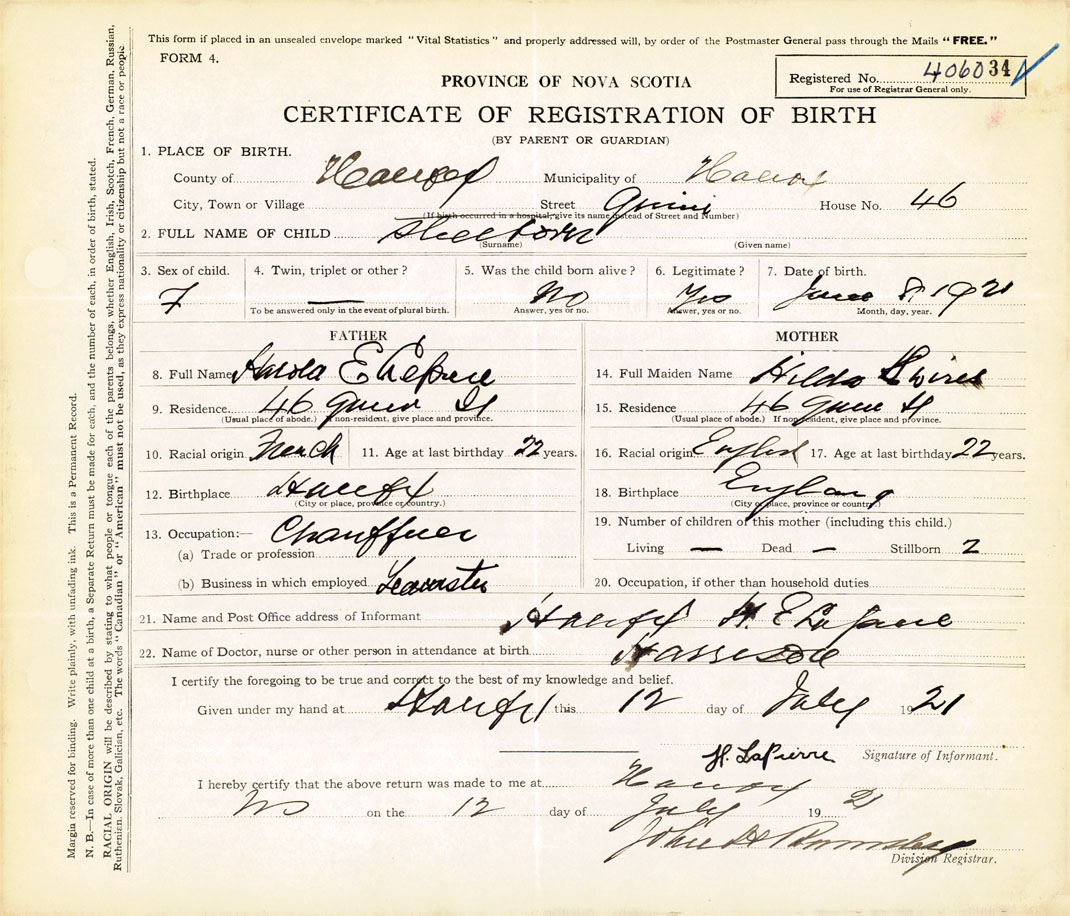 This form if placed in an unsealed envelope marked "Vital Statistics" and properly addressed will, by order of the Postmaster General pass through the Mails "FREE."
FORM 4.
Registered No. 406034
For use of Registrar General only.
PROVINCE OF NOVA SCOTIA
CERTIFICATE OF REGISTRATION OF BIRTH
(BY PARENT OR GUARDIAN)
1. PLACE OF BIRTH.
County of Halifax Municipality of Halifax
City, Town or Village Street House No. 46
(If birth occurred in a hospital, give its name instead of Street and Number)
2. FULL NAME OF CHILD Stillborn
(Surname) (Given name)
3. Sex of child. 4. Twin, triplet or other? 5. Was the child born alive? 6. Legitimate? 7. Date of birth.
F — No Yes June 8, 1921
To be answered only in the event of plural birth. Answer, yes or no. Answer, yes or no. Month, day, year.
FATHER
8. Full Name Harold E
9. Residence 46 St
(Usual place of abode.) If non-resident, give place and province.
10. Racial origin French 11. Age at last birthday 22 years.
12. Birthplace Halifax
(City or place, province or country.)
13. Occupation:— Chauffeur
(a) Trade or profession
(b) Business in which employed
MOTHER
14. Full Maiden Name Hilda
15. Residence 46 St
(Usual place of abode.) If non-resident, give place and province.
16. Racial origin English 17. Age at last birthday 22 years.
18. Birthplace England
(City or place, province or country.)
19. Number of children of this mother (including this child.)
Living — Dead — Stillborn 2
20. Occupation, if other than household duties
21. Name and Post Office address of Informant Halifax H. E.
22. Name of Doctor, nurse or other person in attendance at birth
I certify the foregoing to be true and correct to the best of my knowledge and belief.
Given under my hand at Halifax this 12 day of July 1921
H. LaPierre Signature of Informant.
I hereby certify that the above return was made to me at Halifax
NS on the 12 day of July 1921
John
Division Registrar.
Margin reserved for binding. Write plainly, with unfading ink. This is a Permanent Record.
N. B.—In case of more than one child at a birth, a Separate Return must be made for each, and the number of each, in order of birth, stated.
RACIAL ORIGIN will be described by stating to what people or tongue each of the parents belongs, whether English, Irish, Scotch, French, German, Russian,
Ruthenian, Slovak, Galician, etc. The words "Canadian" or "American" must not be used, as they express nationality or citizenship but not a race or people.